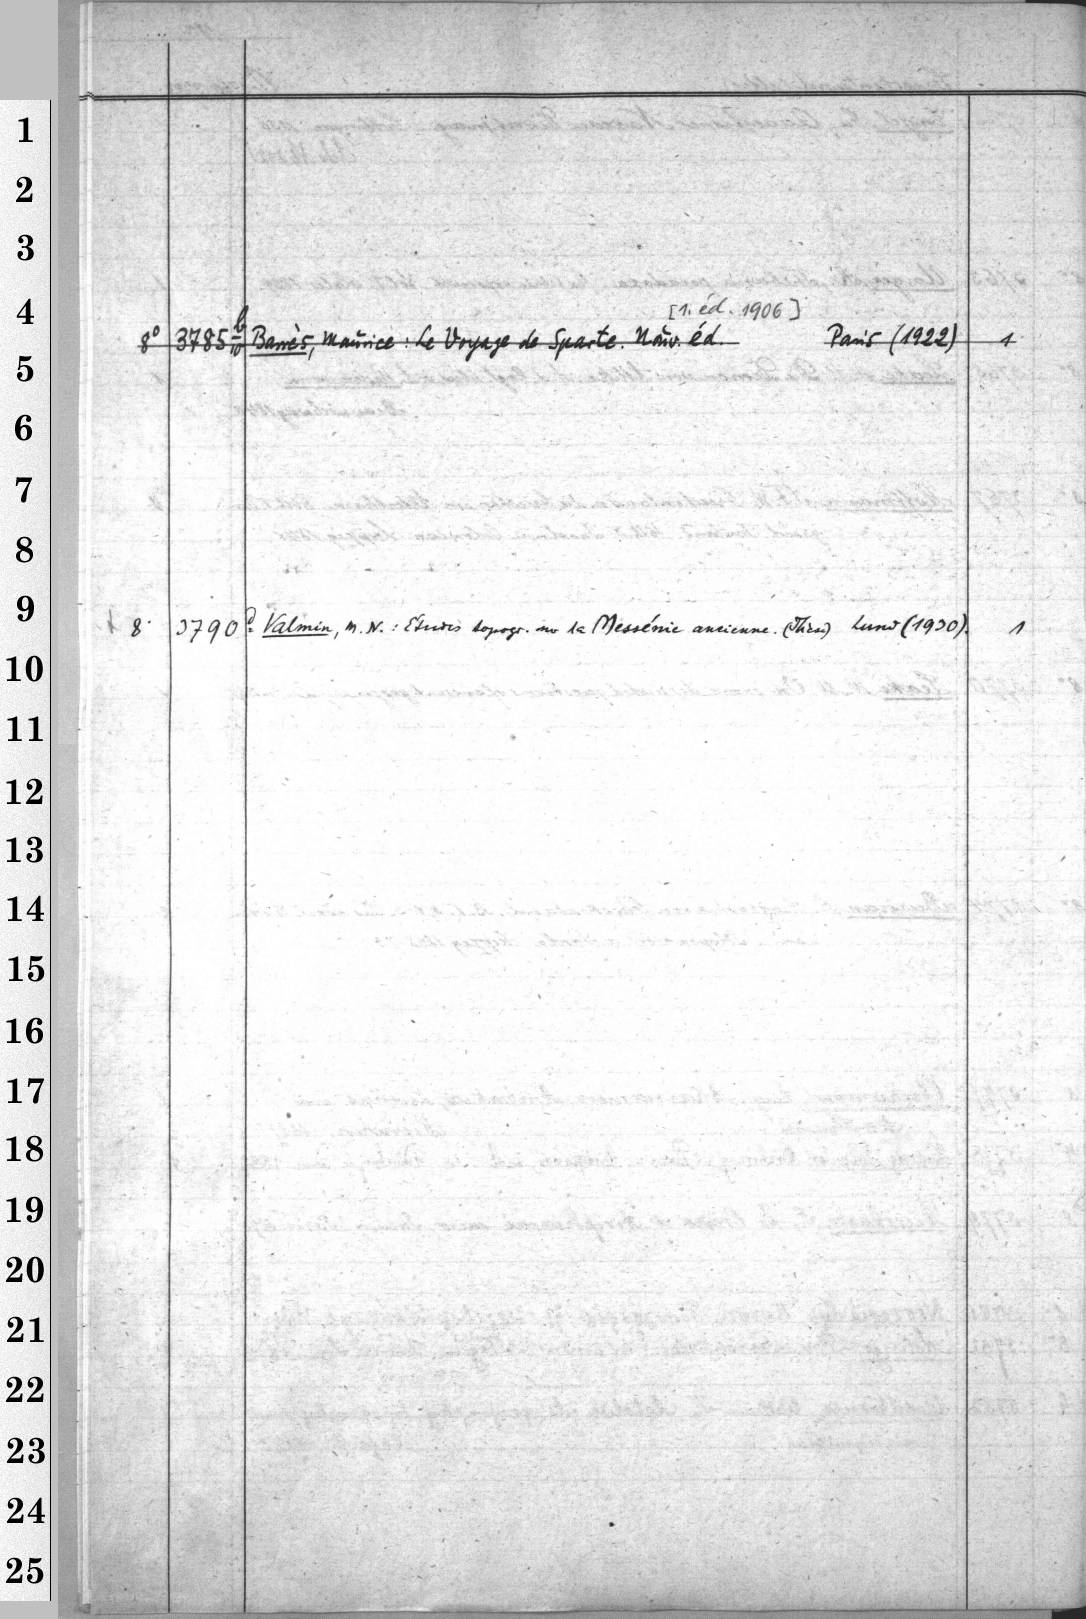 1
2
3
4
[1. éd. 1906]
8° 3785 b/10 Barrès, Maurice : Le Voyage de Sparte. Nouv. éd. Paris (1922) 1
5
6
7
8
9
8° 3790 Valmin, M. N. : Études topogr. sur la Messénie ancienne. (Thèse) Lund (1930). 1
10
11
12
13
14
15
16
17
18
19
20
21
22
23
24
25